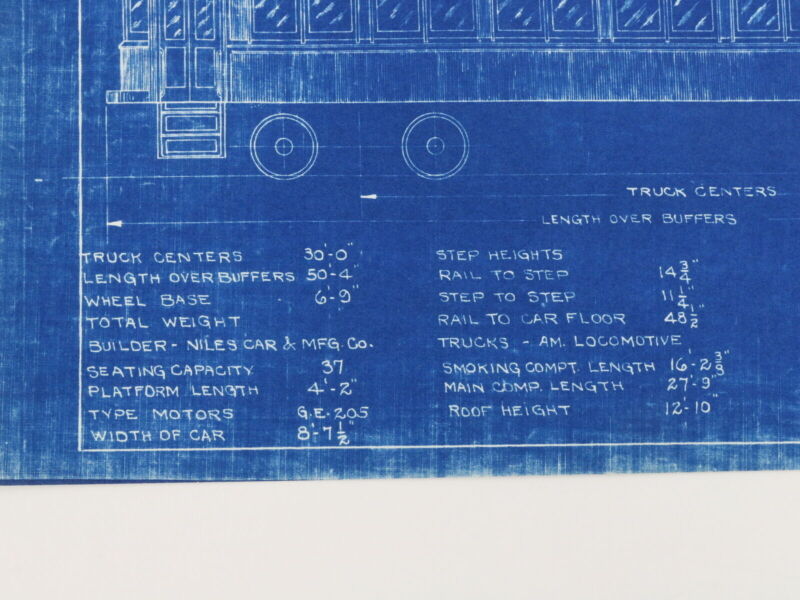 TRUCK CENTERS
LENGTH OVER BUFFERS
TRUCK CENTERS 30'-0"
LENGTH OVER BUFFERS 50'-4"
WHEEL BASE 6'-9"
TOTAL WEIGHT
BUILDER - NILES CAR & MFG. CO.
SEATING CAPACITY 37
PLATFORM LENGTH 4'-2"
TYPE MOTORS G.E. 205
WIDTH OF CAR 8'-7 1/2"
STEP HEIGHTS
RAIL TO STEP 14 3/4"
STEP TO STEP 11 1/4"
RAIL TO CAR FLOOR 48 1/2"
TRUCKS - AM. LOCOMOTIVE
SMOKING COMPT. LENGTH 16'-2 3/8"
MAIN COMP. LENGTH 27'-9"
ROOF HEIGHT 12'-10"